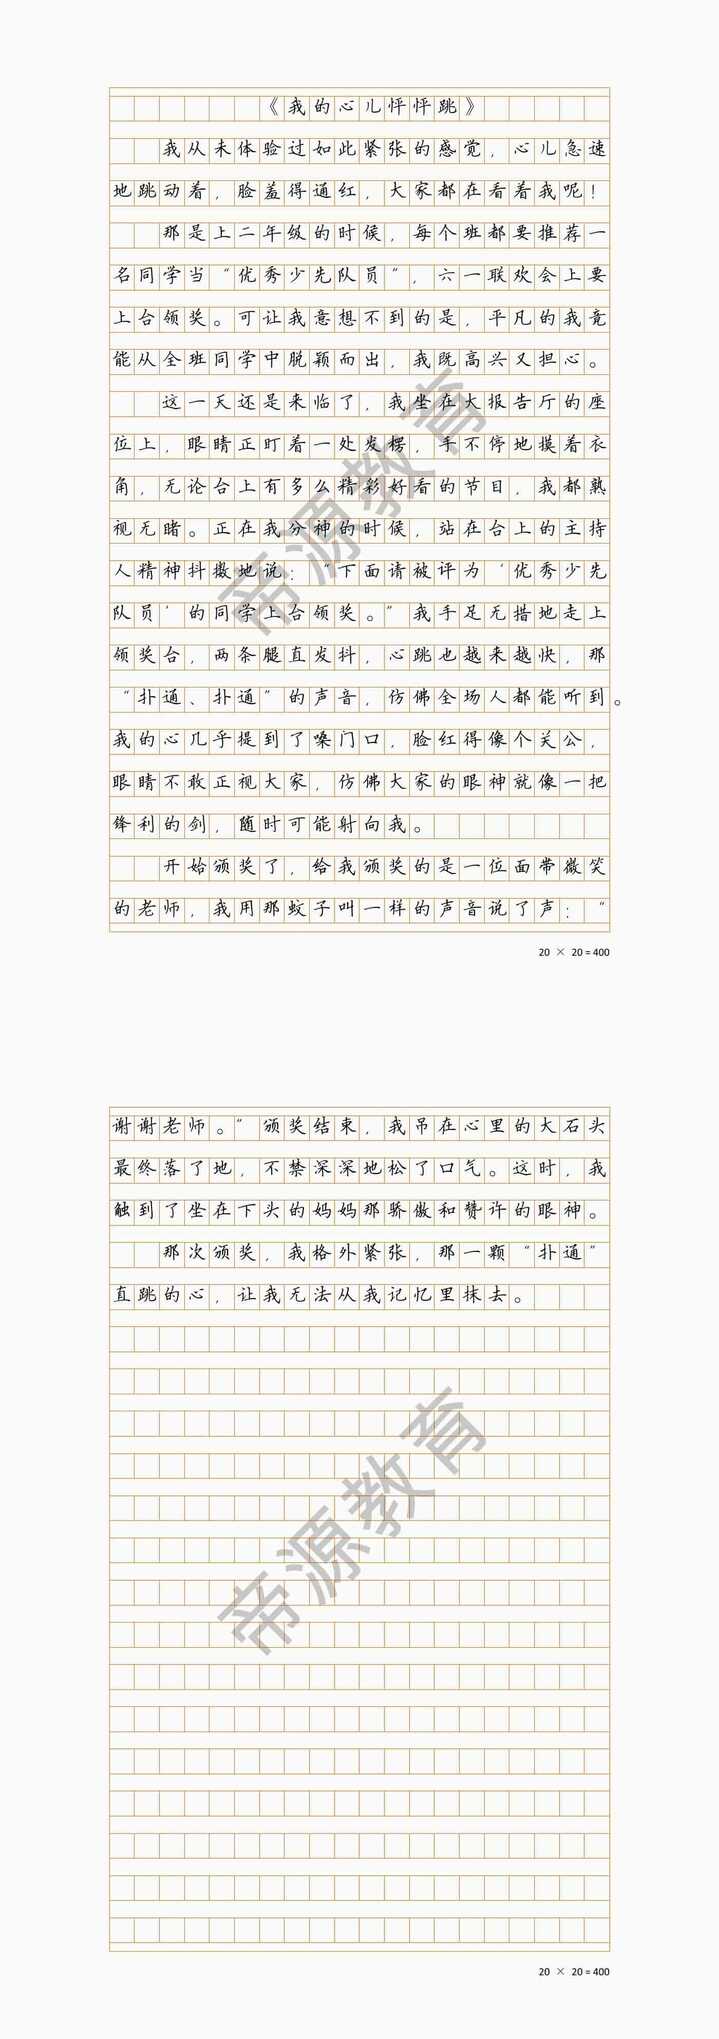 《我的心儿怦怦跳》
我从未体验过如此紧张的感觉，心儿急速
地跳动着，脸羞得通红，大家都在看着我呢！
那是上二年级的时候，每个班都要推荐一
名同学当“优秀少先队员”，六一联欢会上要
上台领奖。可让我意想不到的是，平凡的我竟
能从全班同学中脱颖而出，我既高兴又担心。
这一天还是来临了，我坐在大报告厅的座
位上，眼睛正盯着一处发楞，手不停地摸着衣
角，无论台上有多么精彩好看的节目，我都熟
视无睹。正在我分神的时候，站在台上的主持
人精神抖擞地说：“下面请被评为‘优秀少先
队员’的同学上台领奖。”我手足无措地走上
领奖台，两条腿直发抖，心跳也越来越快，那
“扑通、扑通”的声音，仿佛全场人都能听到。
我的心几乎提到了嗓门口，脸红得像个关公，
眼睛不敢正视大家，仿佛大家的眼神就像一把
锋利的剑，随时可能射向我。
开始颁奖了，给我颁奖的是一位面带微笑
的老师，我用那蚊子叫一样的声音说了声：“
20 × 20＝400
谢谢老师。”颁奖结束，我吊在心里的大石头
最终落了地，不禁深深地松了口气。这时，我
触到了坐在下头的妈妈那骄傲和赞许的眼神。
那次颁奖，我格外紧张，那一颗“扑通”
直跳的心，让我无法从我记忆里抹去。
20 × 20＝400
帝源教育
帝源教育